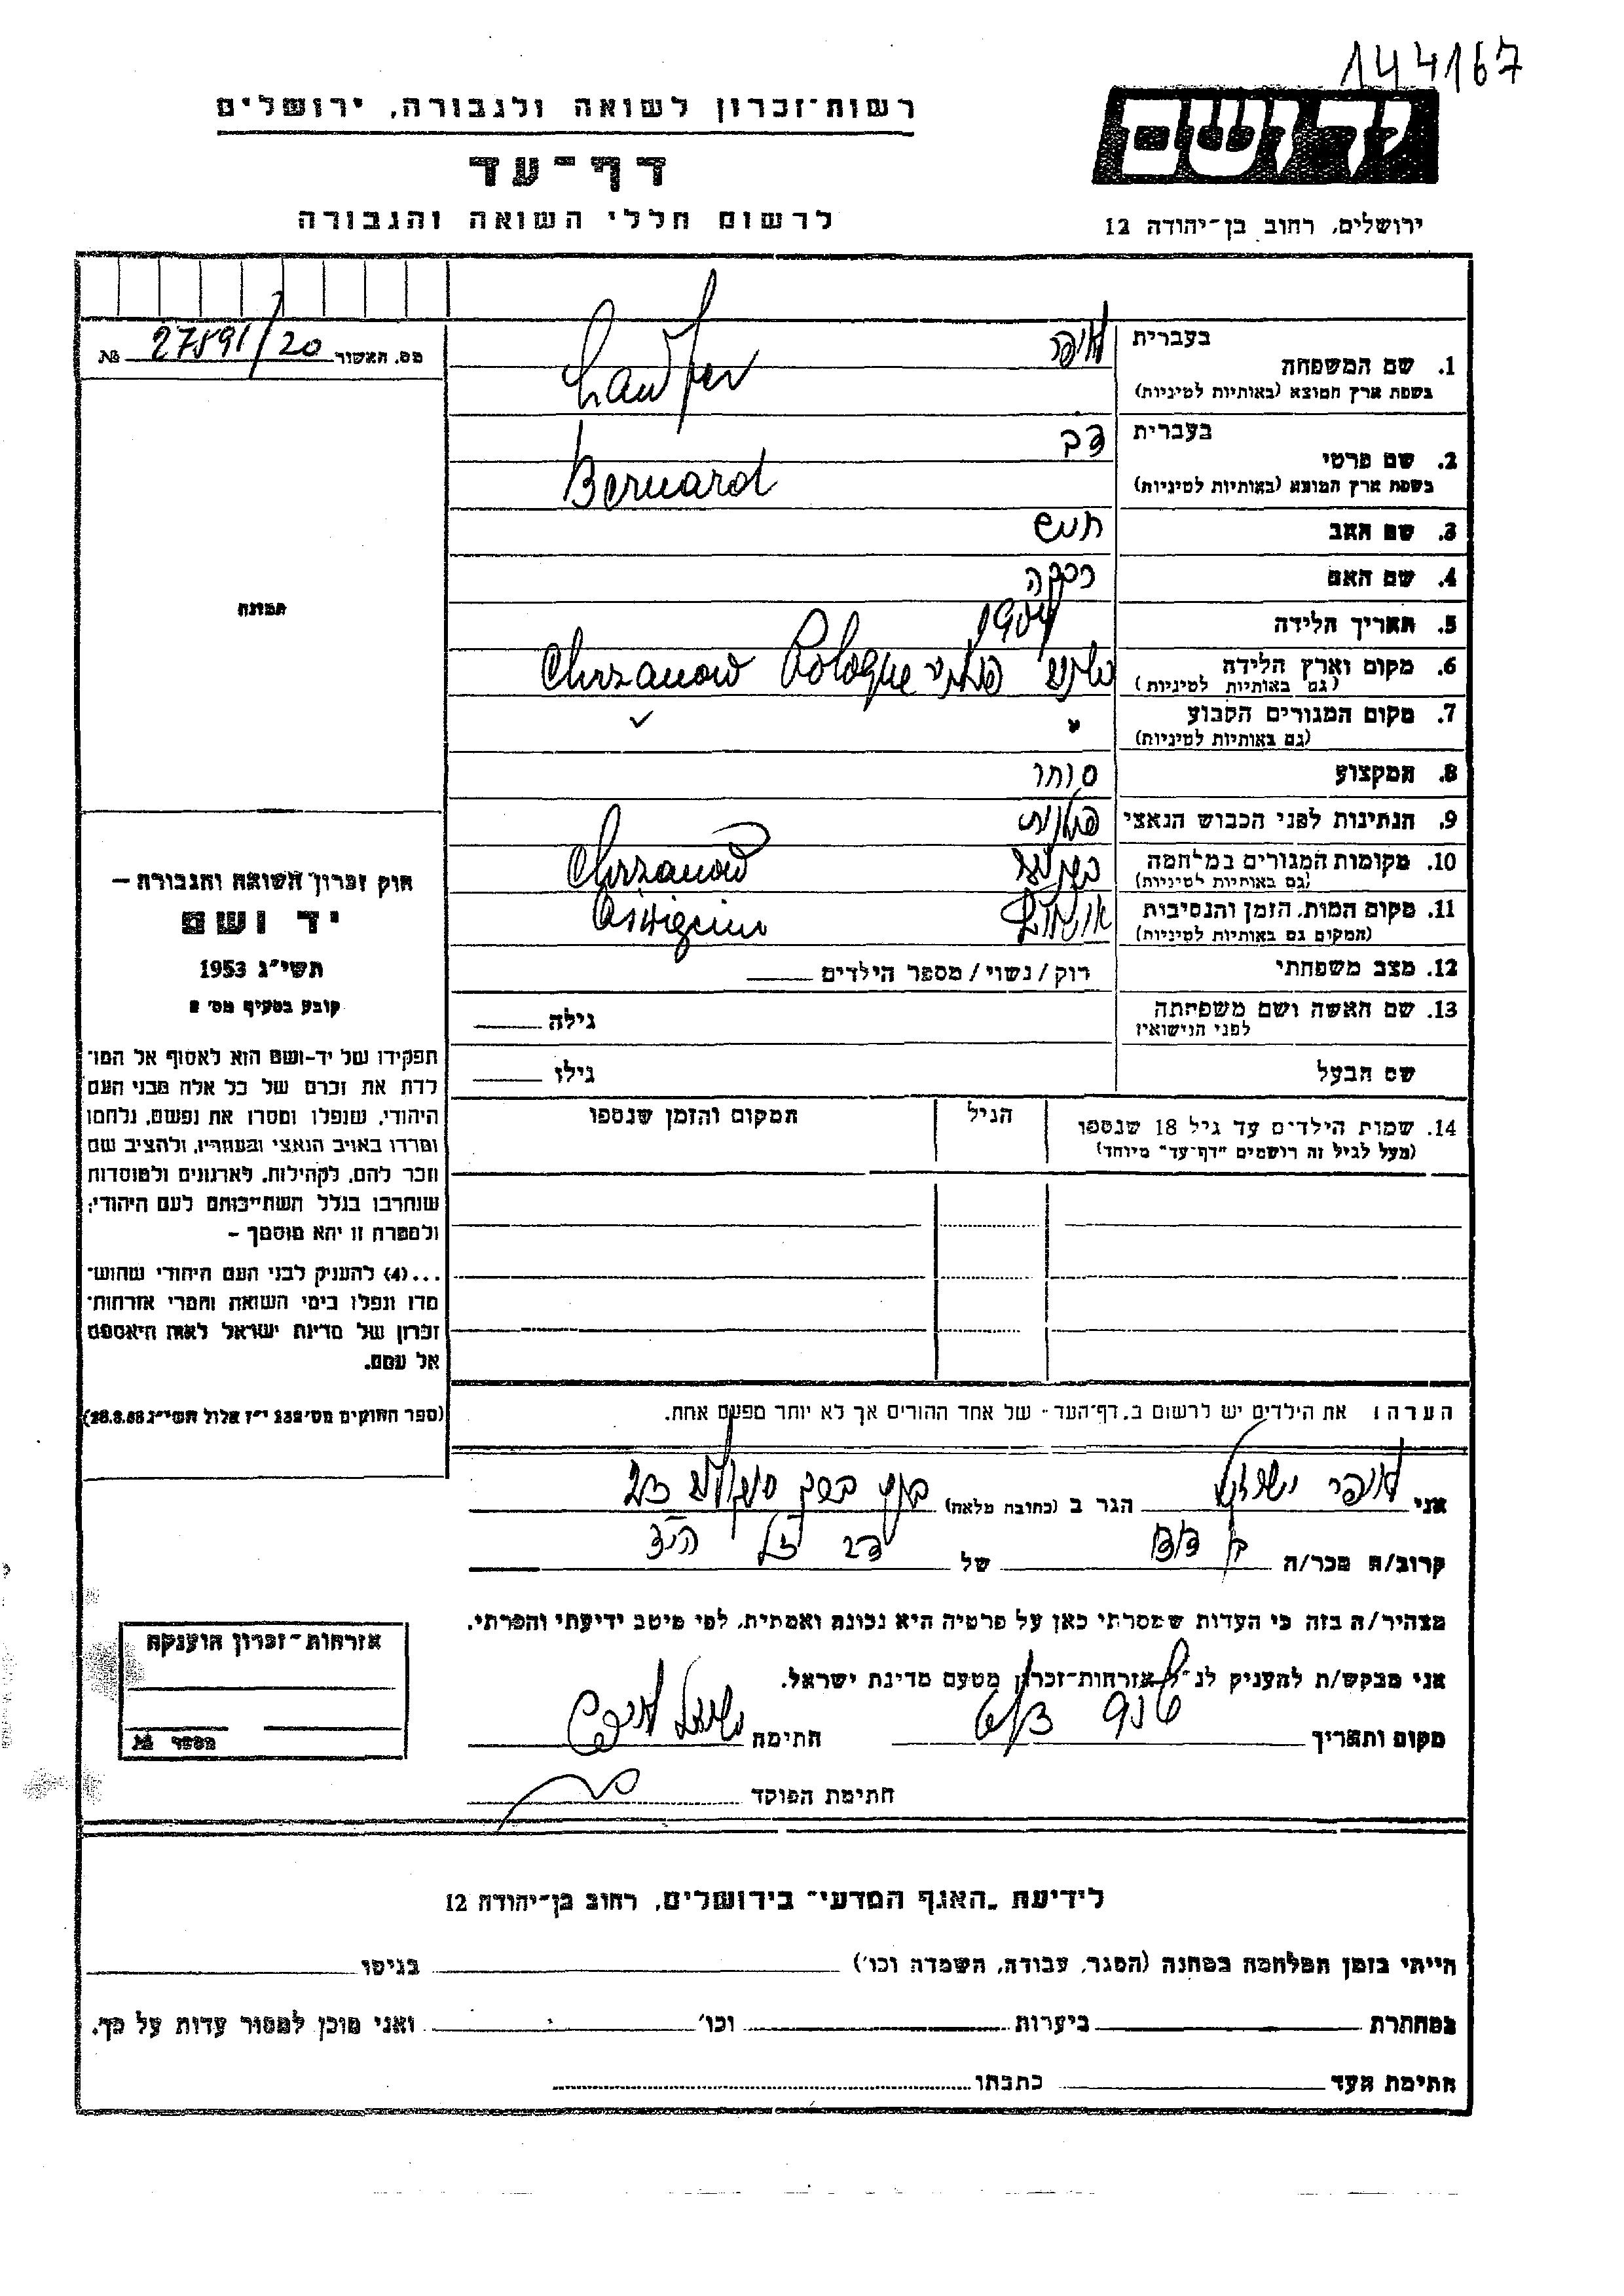 144167
יד ושם
רשות-זכרון לשואה ולגבורה, ירושלים
דף-עד
לרשום חללי השואה והגבורה
ירושלים, רחוב בן-יהודה 12
מס. האשור 27891/20 №
1. שם המשפחה
בעברית לויפר
בשפת ארץ המוצא (באותיות לטיניות) Laufer
2. שם פרטי
בעברית דב
בשפת ארץ המוצא (באותיות לטיניות) Bernard
3. שם האב
4. שם האם רבקה
5. תאריך הלידה
6. מקום וארץ הלידה Chrzanow Pologne
(גם באותיות לטיניות)
7. מקום המגורים הקבוע
(גם באותיות לטיניות)
8. המקצוע סוחר
9. הנתינות לפני הכבוש הנאצי פולנית
10. מקומות המגורים במלחמה Chrzanow
(גם באותיות לטיניות)
11. מקום המות, הזמן והנסיבות
(המקום גם באותיות לטיניות)
12. מצב משפחתי רוק/נשוי/מספר הילדים
13. שם האשה ושם משפחתה גילה
לפני הנישואין
שם הבעל גילו
14. שמות הילדים עד גיל 18 שנספו הגיל המקום והזמן שנספו
(מעל לגיל זה רושמים "דף-עד" מיוחד)
תמונה
חוק זכרון השואה והגבורה –
יד ושם
תשי"ג 1953
קובע בסעיף מס' 2
תפקידו של יד-ושם הוא לאסוף אל המו-
לדת את זכרם של כל אלה מבני העם
היהודי, שנפלו ומסרו את נפשם, נלחמו
ומרדו באויב הנאצי ובעוזריו, ולהציב שם
וזכר להם, לקהילות, לארגונים ולמוסדות
שנחרבו בגלל השתייכותם לעם היהודי;
ולמטרה זו יהא מוסמך –
...(4) להעניק לבני העם היהודי שהוש-
מדו ונפלו בימי השואה והמרי אזרחות-
זכרון של מדינת ישראל לאות היאספם
אל עמם.
(ספר החוקים מס' 132 י"ז אלול תשי"ג 28.8.53)
הערה: את הילדים יש לרשום ב"דף-העד" של אחד ההורים אך לא יותר מפעם אחת.
אני לויפר ישראל הגר ב (כתובת מלאה)
קרוב/ה מכר/ה בן דוד של דב ז"ל הי"ד
מצהיר/ה בזה כי העדות שמסרתי כאן על פרטיה היא נכונה ואמתית, לפי מיטב ידיעתי והכרתי.
אני מבקש/ת להעניק לנ"ל אזרחות-זכרון מטעם מדינת ישראל.
מקום ותאריך חתימה ישראל לויפר
חתימת הפוקד
אזרחות-זכרון הוענקה
מספר №
לידיעת "האגף המדעי" בירושלים, רחוב בן-יהודה 12
הייתי בזמן המלחמה במחנה (הסגר, עבודה, השמדה וכו') בגיטו
במחתרת ביערות וכו' ואני מוכן למסור עדות על כך.
חתימת העד כתבתו